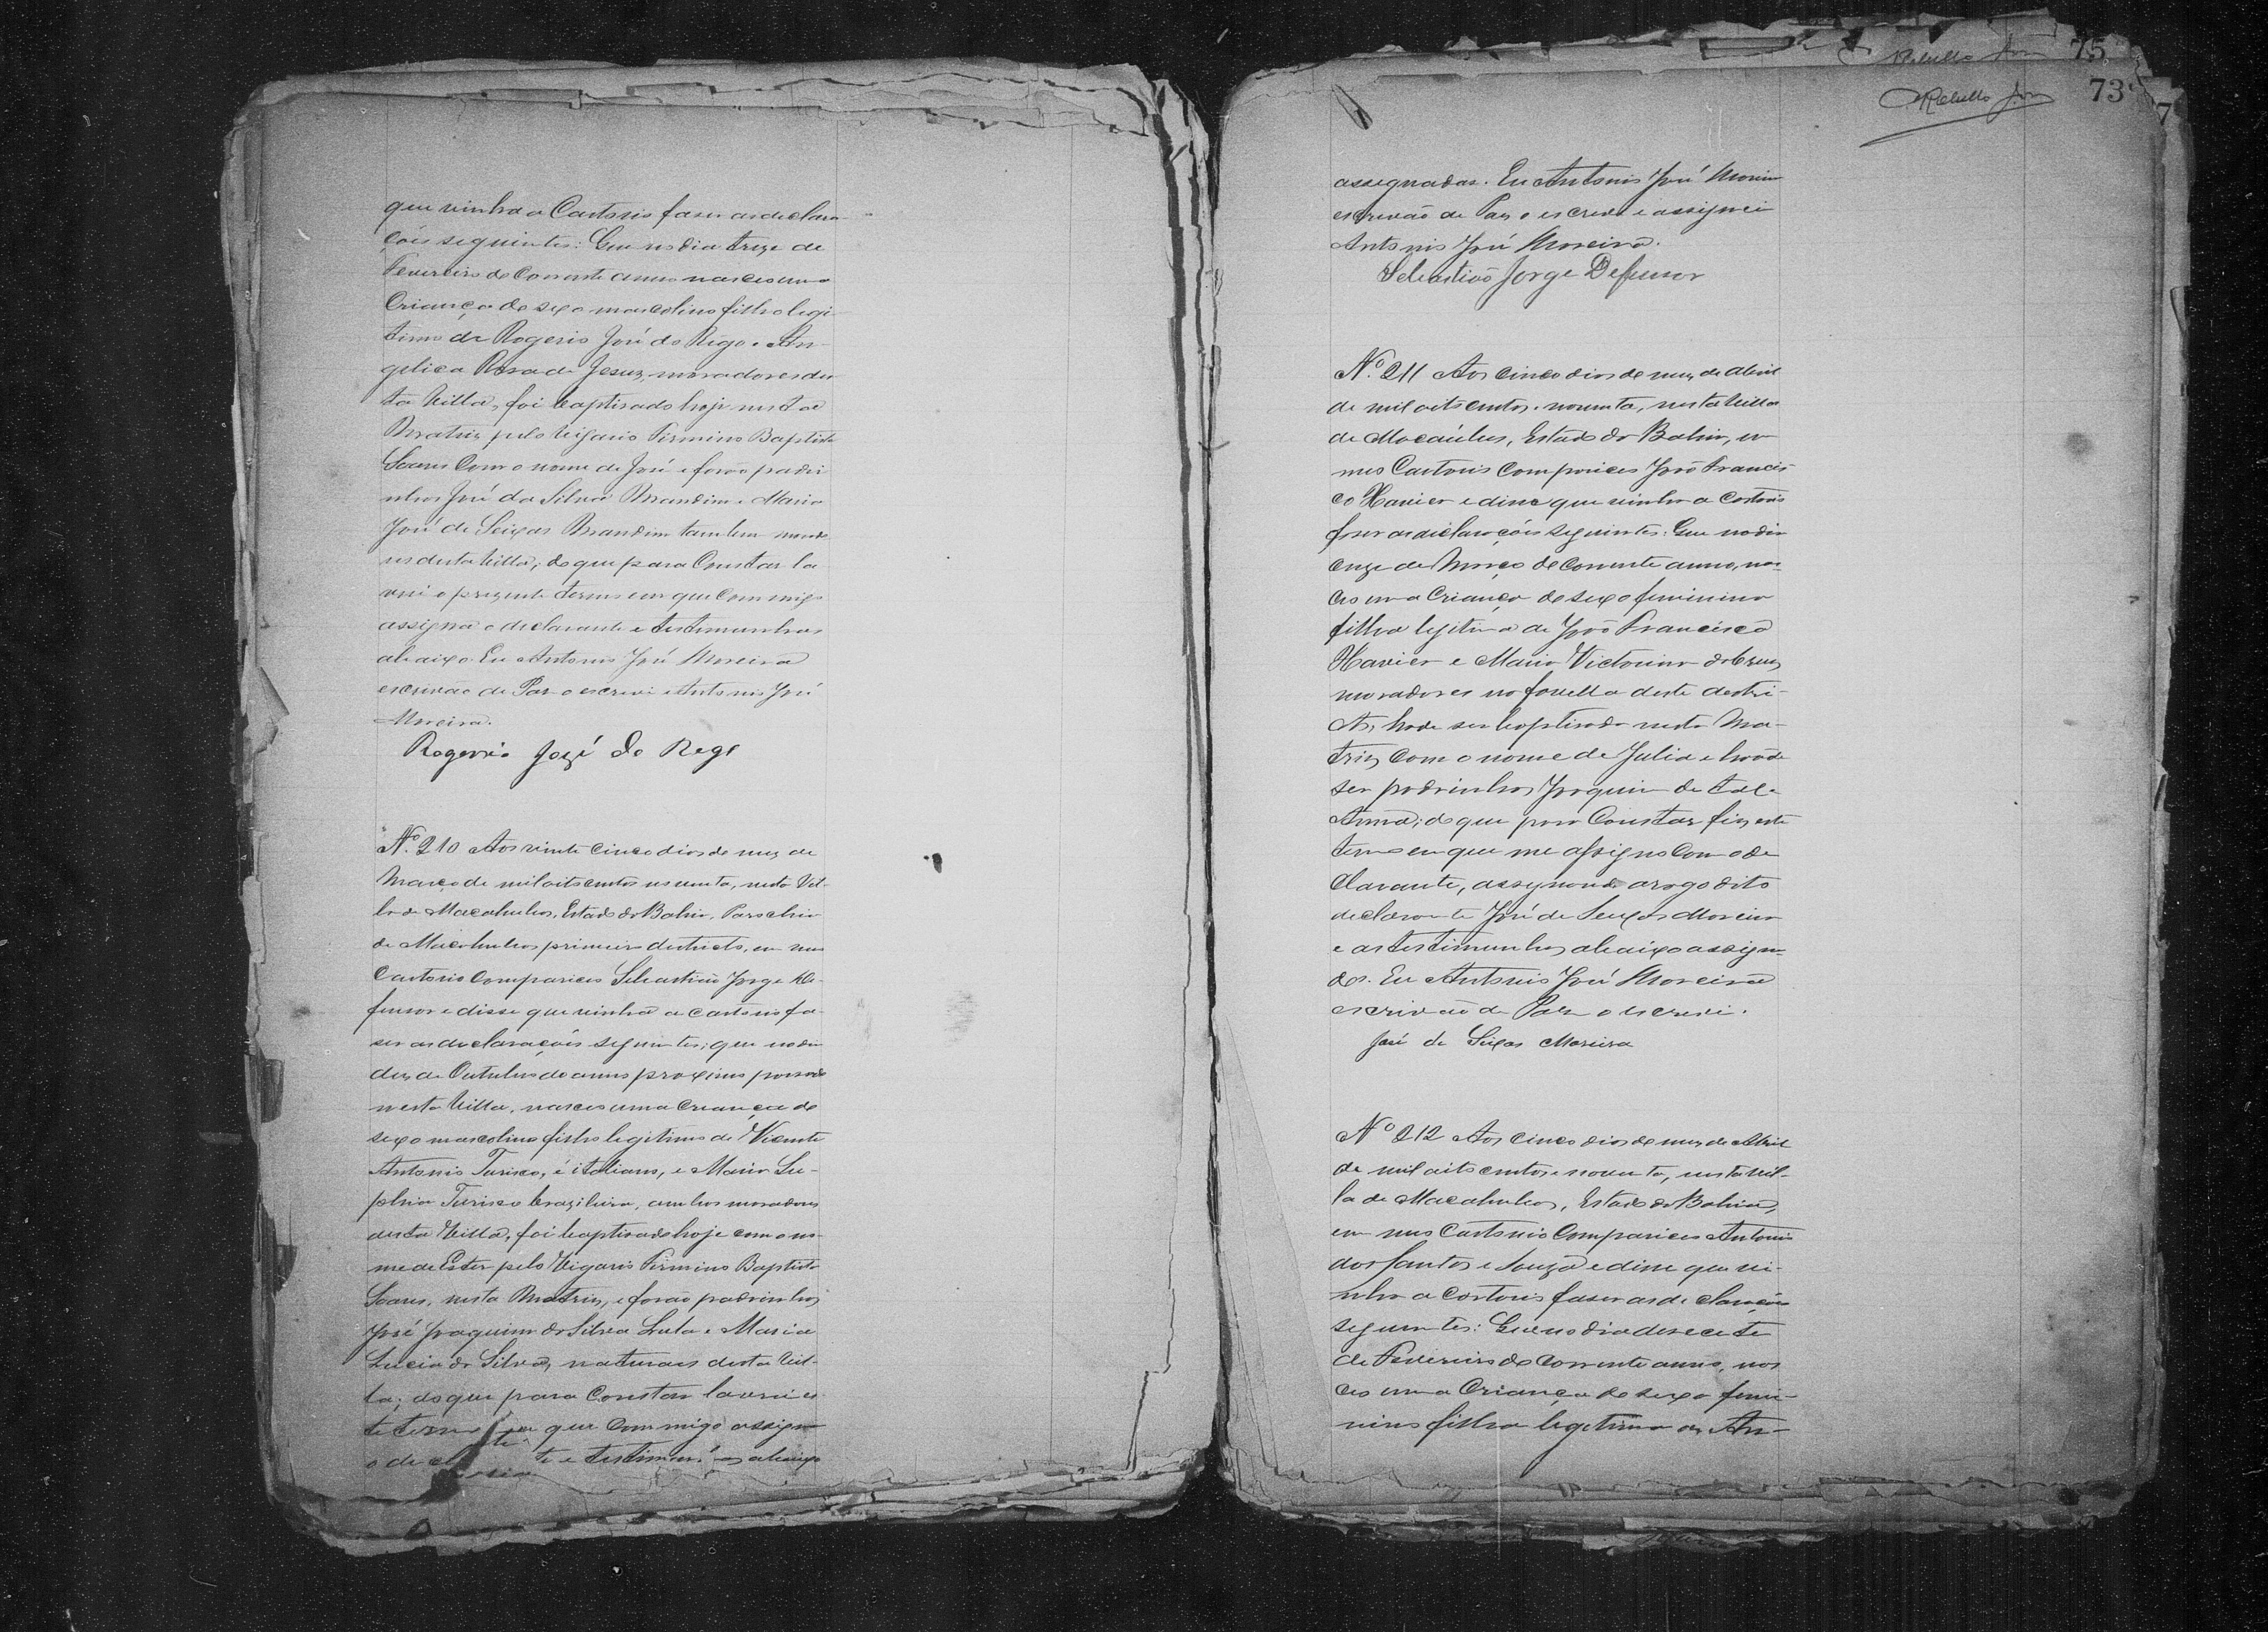 que vinha a Cartorio faser as declara-
ções seguintes: Que no dia treze de
Fevereiro do Corrente anno nasceo uma
Criança do sexo mascolino filho legi-
timo de Rogerio José do Rego e An-
gelica Rosa de Jesus, moradores des-
ta Villa, foi baptisado hoje nesta
Matriz pelo Vigario Firmino Baptista
Soares Com o nome de José e forão padri-
nhos José da Silva Brandim e Maria
José de Seixas Brandim tambem morado-
res desta Villa; do que para Constar la-
vrei o prezente termo em que Commigo
assigna o declarante e testimunhas
abaixo. Eu Antonio José Moreira
escrivão de Paz o escrevi e Antonio José
Moreira.
Rogerio Jozé do Rego
Nº 210 Aos vinte cinco dias do mez de
Março de mil oito centos noventa, nesta Vil-
la de Macahubas, Estado da Bahia, Parochia
de Macahubas primeiro destricto, em meu
Cartorio Compareceo Sebastião Jorge De-
fensor e disse que vinha a Cartorio fa-
ser as declarações seguintes; que no dia
dez de Outubro do anno proximo passado
nesta Villa, nasceo uma Criança do
sexo mascolino filho legitimo de Vicente
Antonio Turisco, é italiano, e Maria
Turisco brazileira, ambos moradores
desta Villa, foi baptisado hoje com o no-
me de Ester pelo Vigario Firmino Baptista
Soares, nesta Matriz, e forão padrinhos
José Joaquim da Silva Lula e Maria
Lucia da Silva, naturaes desta Vil-
la; do que para Constar lavrei es-
te termo em que Commigo assigna
o de te e testimun as abaixo
75
73
Rebello
assegnadas. Eu Antonio José Moreira
escrivão de Paz o escrevi e assignei
Antonio José Moreira.
Sebastião Jorge Defensor
Nº 211 Aos cinco dias do mez de Abril
de mil oito centos e noventa, nesta Villa
de Macaúbas, Estado da Bahia, em
meu Cartorio Compareceo João Francis-
co Xavier e disse que vinha a Cartorio
faser as declarações seguintes: Que no dia
onze de Março do Corrente anno, nas-
ceo uma Criança do sexo feminino
filha legitima de João Francisco
Xavier e Maria Victorina da Cruz
moradores no favella deste destri-
cto, hade ser baptisada nesta Ma-
triz Com o nome de Julia e hão de
ser padrinhos Joaquim de tal e
Anna; do que para Constar fiz este
termo em que me assigno Com o de-
clarante, assignando a rogo do dito
declarante José de Seixas Moreira
e as testimunhas abaixo assigna-
das. Eu Antonio José Moreira
escrivão de Paz o escrevi.
José de Seixas Moreira
Nº 212 Aos cinco dias do mez de Abril
de mil oito centos e noventa, nesta Vil-
la de Macahubas, Estado da Bahia,
em meu Cartorio Compareceo Antonio
dos Santos e Souza e disse que vi-
nha a Cartorio faser as declarações
seguintes: Que no dia desecete
de Fevereiro do Corrente anno, nas-
ceo uma Criança do sexo femi-
nino filha legitima de An-